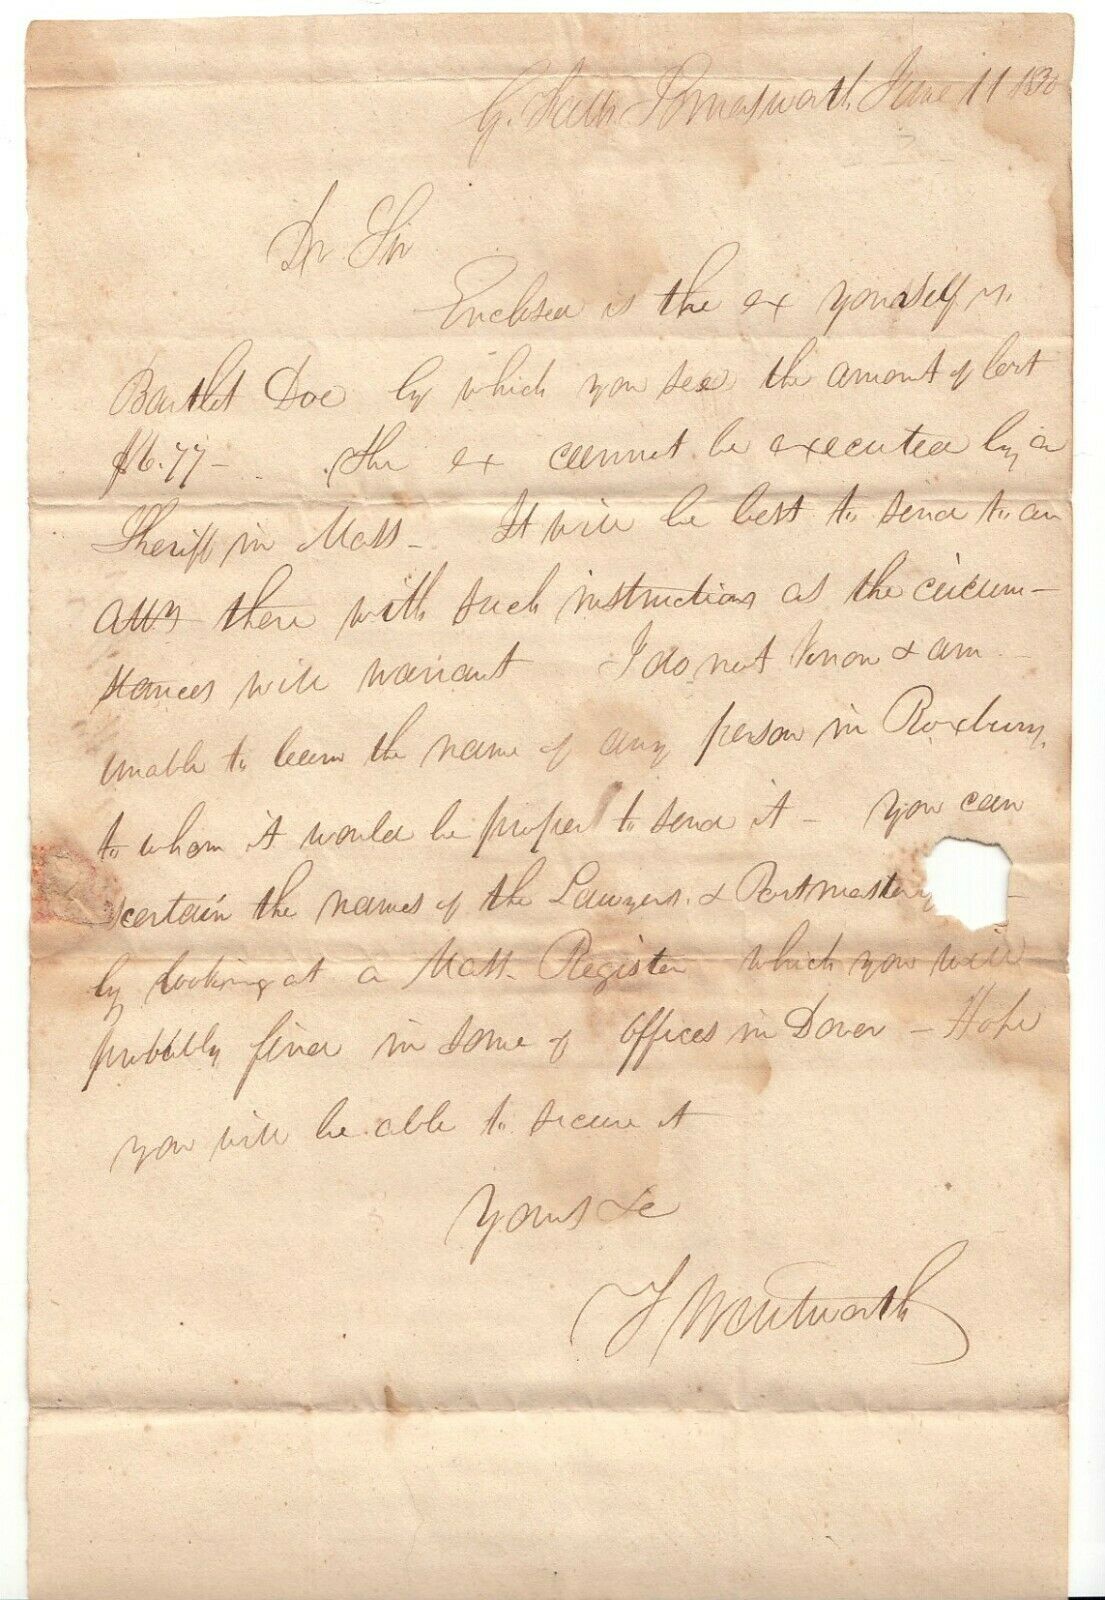 G. Falls Somersworth June 11 183
Dr Sir
Enclosed is the ex yourself v.
Bartlet Doe by which you see the amount of Cost
$6.77 - The ex cannot be executed by a
Sheriff in Mass - It will be best to send to an
atty there with such instructions as the circum-
stances will warrant I do not know & am
unable to learn the name of any person in Roxbury
to whom it would be proper to send it - You can
scertain the names of the Lawyers & Postmaster
by looking at a Mass. Register which you will
probbly find in some of offices in Dover - Hope
you will be able to secure it
Yours &c
Wentworth